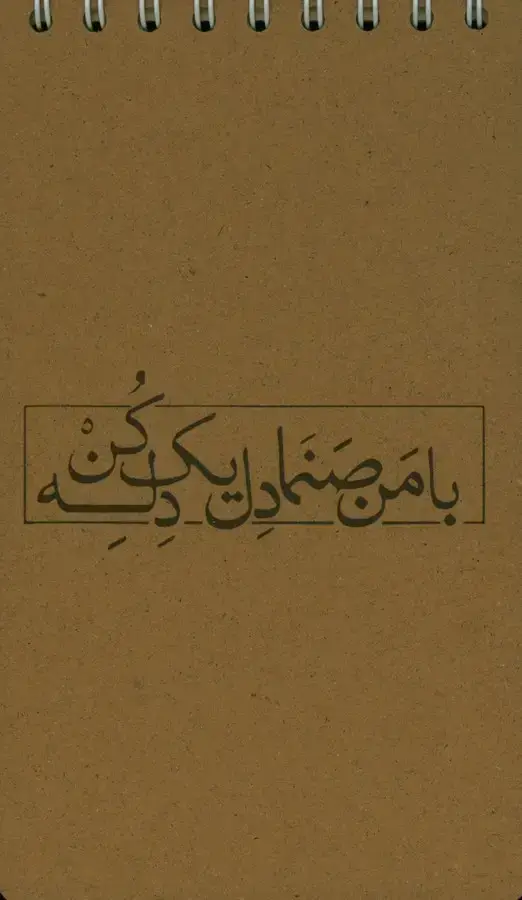 با مَن صَنَما دِل یک دِلِه کُنْ